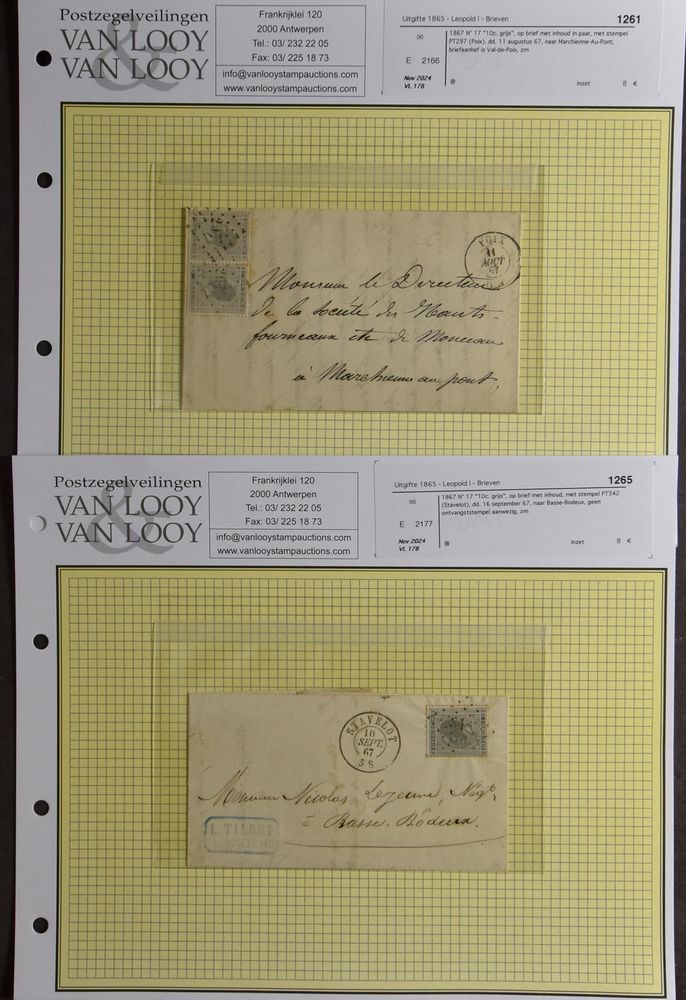 Postzegelveilingen
VAN LOOY
&
VAN LOOY
Frankrijklei 120
2000 Antwerpen
Tel.: 03/ 232 22 05
Fax: 03/ 225 18 73
info@vanlooystampauctions.com
www.vanlooystampauctions.com
Uitgifte 1865 - Leopold I - Brieven 1261
1867 N° 17 "10c. grijs", op brief met inhoud in paar, met stempel
PT297 (Poix), dd. 11 augustus 67, naar Marchienne-Au-Pont,
briefaanhef is Val-de-Poix, zm
E 2166
Nov 2024
Vl. 178
Inzet 8 €
POIX
11
AOUT
67
Monsieur le Directeur
de la Société des Hauts-
fourneaux etc de Monceau
à Marchienne au pont.
Postzegelveilingen
VAN LOOY
&
VAN LOOY
Frankrijklei 120
2000 Antwerpen
Tel.: 03/ 232 22 05
Fax: 03/ 225 18 73
info@vanlooystampauctions.com
www.vanlooystampauctions.com
Uitgifte 1865 - Leopold I - Brieven 1265
1867 N° 17 "10c. grijs", op brief met inhoud, met stempel PT342
(Stavelot), dd. 16 september 67, naar Basse-Bodeux, geen
ontvangststempel aanwezig, zm
E 2177
Nov 2024
Vl. 178
Inzet 8 €
STAVELOT
10
SEPT.
67
5 S
Monsieur Nicolas Lejeune, Négt,
à Basse-Bodeux.
L. TALBOT